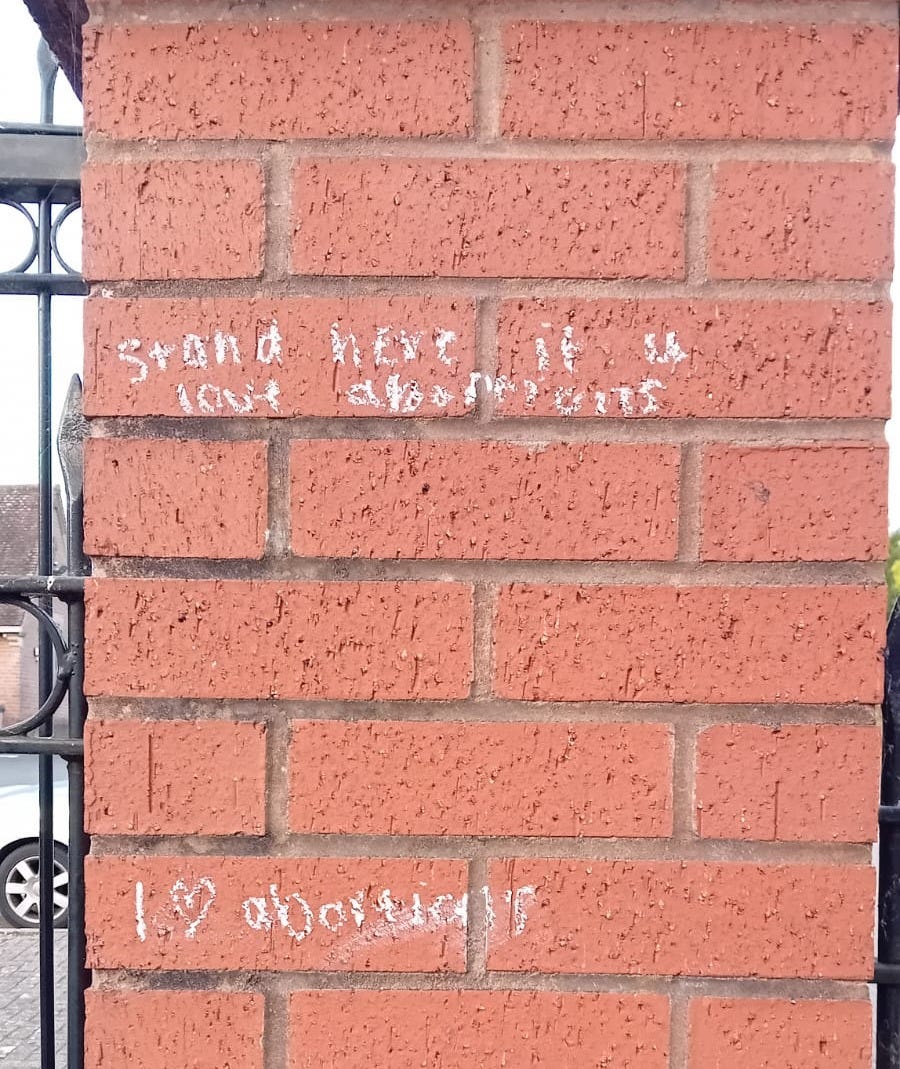 Stand here if u
love abortions
I ♡ abortions